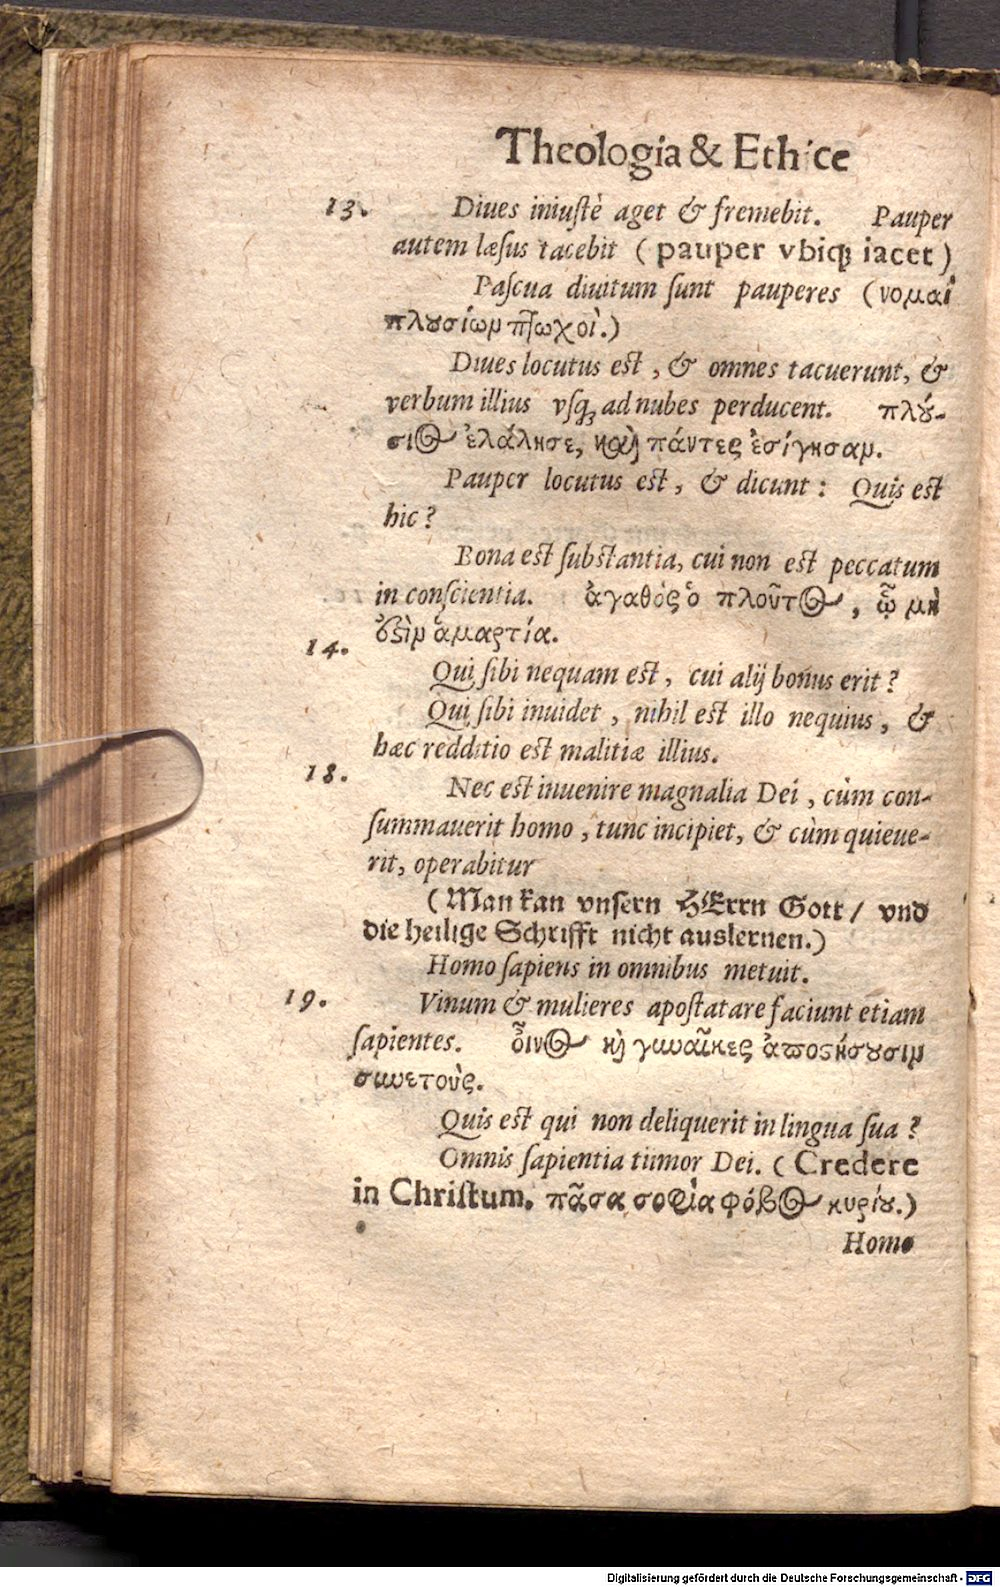 Theologia & Ethice
13. Diues iniustè aget & fremebit. Pauper
autem læsus tacebit (pauper vbiq; iacet)
Pascua diuitum sunt pauperes (νομαὶ
πλουσίων πτωχοὶ.)
Diues locutus est, & omnes tacuerunt, &
verbum illius vsq; ad nubes perducent. πλού-
σιος ἐλάλησε, καὶ πάντες ἐσίγησαν.
Pauper locutus est, & dicunt: Quis est
hic?
Bona est substantia, cui non est peccatum
in conscientia. ἀγαθὸς ὁ πλοῦτος, ᾧ μὴ
ἐστὶν ἁμαρτία.
14.
Qui sibi nequam est, cui alij bonus erit?
Qui sibi inuidet, nihil est illo nequius, &
hæc redditio est malitiæ illius.
18.
Nec est inuenire magnalia Dei, cùm con-
summauerit homo, tunc incipiet, & cùm quieue-
rit, operabitur
(Man kan vnsern HErrn Gott/ vnd
die heilige Schrifft nicht auslernen.)
Homo sapiens in omnibus metuit.
19. Vinum & mulieres apostatare faciunt etiam
sapientes. οἶνος καὶ γυναῖκες ἀποστήσουσιν
συνετούς.
Quis est qui non deliquerit in lingua sua?
Omnis sapientia timor Dei. (Credere
in Christum. πᾶσα σοφία φόβος κυρίου.)
Homo
Digitalisierung gefördert durch die Deutsche Forschungsgemeinschaft - DFG